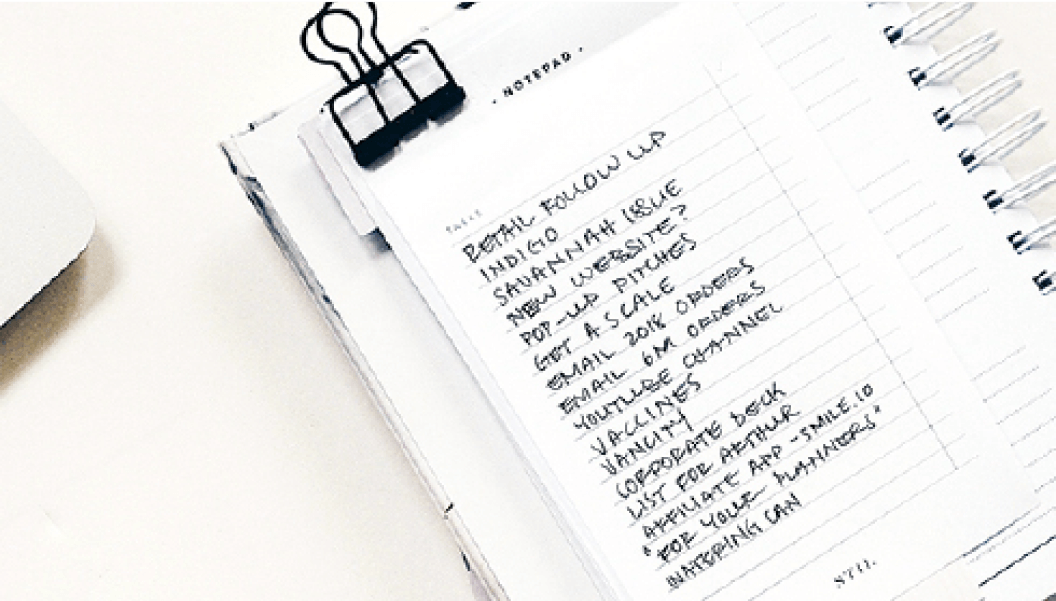 • NOTEPAD •
RETAIL FOLLOW UP
INDIGO
SAVANNAH ISSUE
NEW WEBSITE?
POP-UP PITCHES
GET A SCALE
EMAIL 2018 ORDERS
EMAIL 6M ORDERS
YOUTUBE CHANNEL
VACCINES
VANCITY
CORPORATE DECK
LIST FOR ARTHUR
AFFILIATE APP - SMILE.IO
"FOR YOUR PLANNERS"
WATERING CAN
STIL.